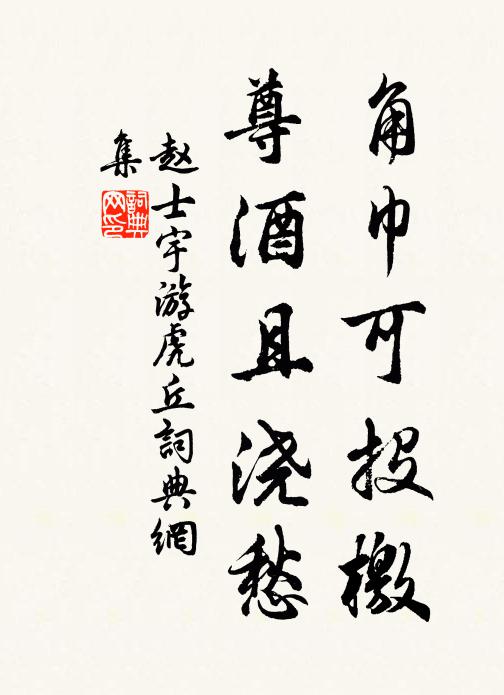 角巾可投檄
尊酒且浇愁
赵士宇游虎丘詞典網
集
詞典
网印